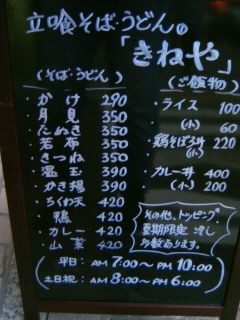 立喰そば・うどんの
「きねや」
(そば・うどん)
・かけ 290
・月見 350
・たぬき 350
・若布 350
・きつね 350
・温玉 390
・かき揚 390
・ちくわ天 420
・鴨 420
・カレー 420
・山菜 420
(ご飯物)
・ライス 100
(小) 60
・鶏そぼろ丼 220
(小)
・カレー丼 400
(小) 200
その他、トッピング
夏期限定 冷し
多数あります。
平日: AM 7:00〜PM 10:00
土日祝: AM 8:00〜PM 6:00